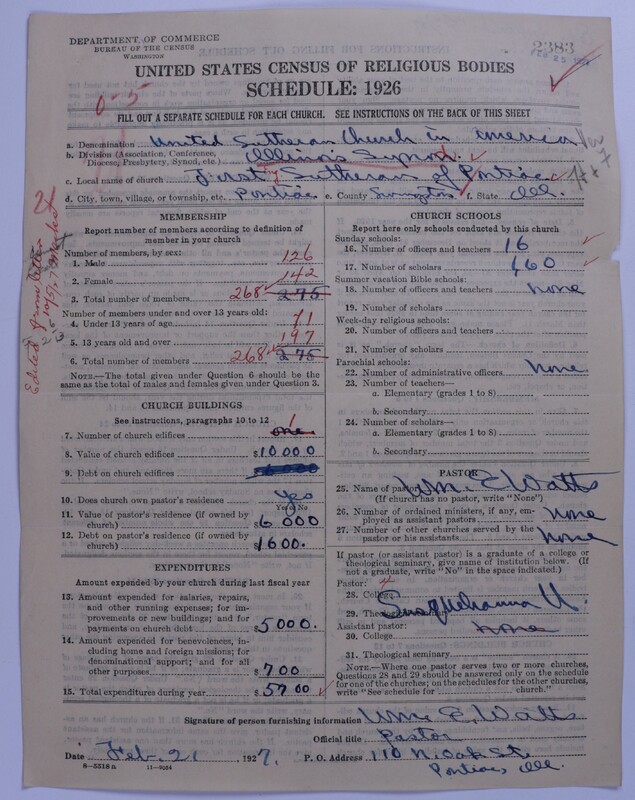 DEPARTMENT OF COMMERCE
BUREAU OF THE CENSUS
WASHINGTON
2383
FEB 25
UNITED STATES CENSUS OF RELIGIOUS BODIES
SCHEDULE: 1926
0-5
FILL OUT A SEPARATE SCHEDULE FOR EACH CHURCH. SEE INSTRUCTIONS ON THE BACK OF THIS SHEET
a. Denomination United Lutheran Church in America
b. Division (Association, Conference, Diocese, Presbytery, Synod, etc.) Illinois Synod.
c. Local name of church First Lutheran of Pontiac
d. City, town, village, or township, etc. Pontiac e. County Livingston f. State Ill.
MEMBERSHIP
Report number of members according to definition of member in your church
Number of members, by sex:
1. Male 126
2. Female 142
3. Total number of members 268 275
Number of members under and over 13 years old:
4. Under 13 years of age 71
5. 13 years old and over 197
6. Total number of members 268 275
NOTE.—The total given under Question 6 should be the same as the total of males and females given under Question 3.
CHURCH BUILDINGS
See instructions, paragraphs 10 to 12
7. Number of church edifices one 1
8. Value of church edifices $10000
9. Debt on church edifices
10. Does church own pastor's residence yes
Yes or No
11. Value of pastor's residence (if owned by church) $6000
12. Debt on pastor's residence (if owned by church) 1600.
EXPENDITURES
Amount expended by your church during last fiscal year
13. Amount expended for salaries, repairs, and other running expenses; for improvements or new buildings; and for payments on church debt $5000.
14. Amount expended for benevolences, including home and foreign missions; for denominational support; and for all other purposes $700
15. Total expenditures during year $5700
CHURCH SCHOOLS
Report here only schools conducted by this church
Sunday schools:
16. Number of officers and teachers 16
17. Number of scholars 160
Summer vacation Bible schools:
18. Number of officers and teachers none
19. Number of scholars
Week-day religious schools:
20. Number of officers and teachers
21. Number of scholars
Parochial schools:
22. Number of administrative officers none
23. Number of teachers—
a. Elementary (grades 1 to 8)
b. Secondary
24. Number of scholars—
a. Elementary (grades 1 to 8)
b. Secondary
PASTOR
25. Name of pastor Wm. E. Watts
(If church has no pastor, write "None")
26. Number of ordained ministers, if any, employed as assistant pastors none
27. Number of other churches served by the pastor or his assistants none
If pastor (or assistant pastor) is a graduate of a college or theological seminary, give name of institution below. (If not a graduate, write "No" in the space indicated.)
Pastor:
28. College
29. Theological seminary Susquehanna U.
Assistant pastor:
30. College none
31. Theological seminary
NOTE.—Where one pastor serves two or more churches, Questions 28 and 29 should be answered only on the schedule for one of the churches; on the schedules for the other churches, write "See schedule for ........ church."
Signature of person furnishing information Wm. E. Watts
Official title Pastor
Date Feb. 21, 1927. P. O. Address 110 N. Oak St.
Pontiac, Ill.
8-5318 a 11-9684